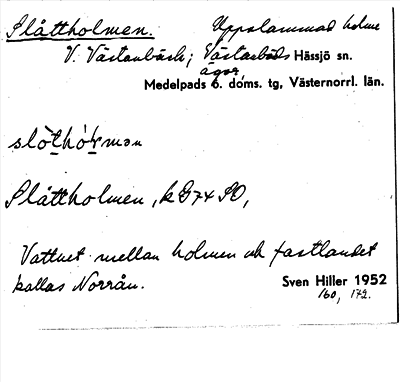 Slåttholmen. Uppslammad holme
V. Västanbäck; Västanbäcks Hässjö sn.
ägor
Medelpads ö. doms. tg, Västernorrl. län.
slòthòḷmən
Slåttholmen, k 874 SO,
Vattnet mellan holmen och fastlandet
kallas Norrån.
Sven Hiller 1952
160, 172.